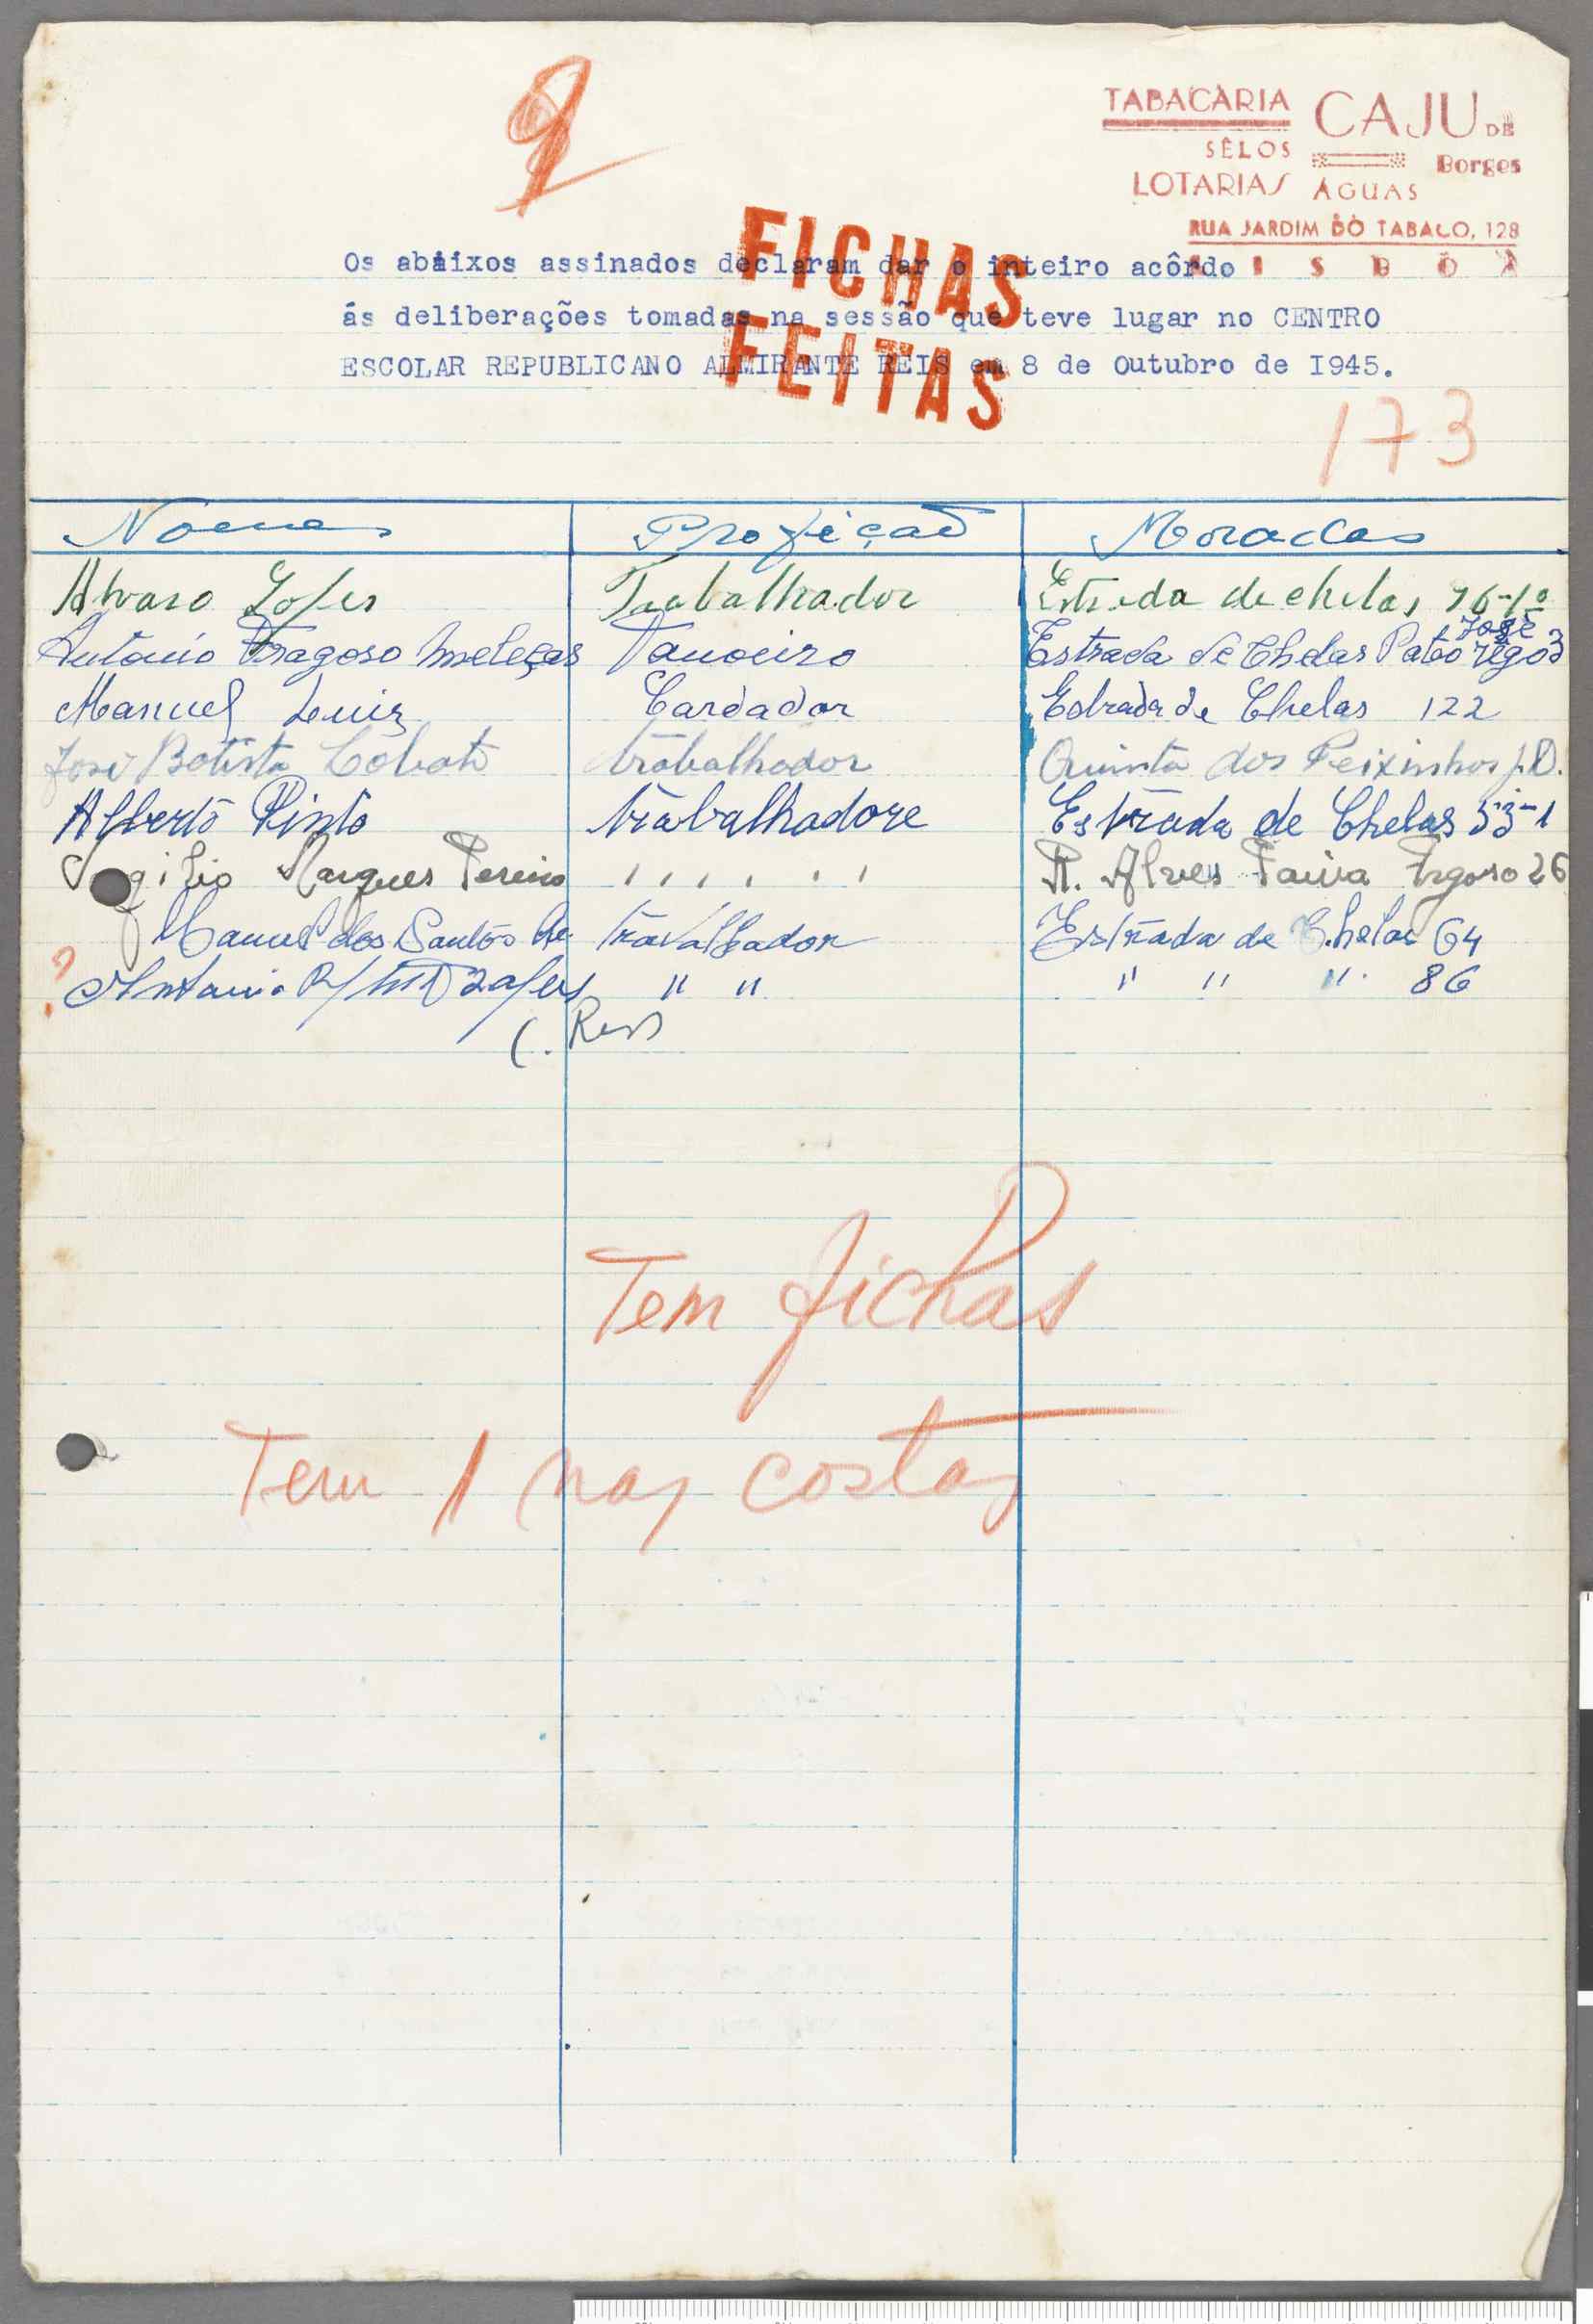 9
TABACARIA CAJU DE
SÊLOS Borges
LOTARIAS ÁGUAS
RUA JARDIM DO TABACO, 128
LISBOA
FICHAS
FEITAS
Os abaixos assinados declaram dar o inteiro acôrdo
ás deliberações tomadas na sessão que teve lugar no CENTRO
ESCOLAR REPUBLICANO ALMIRANTE REIS em 8 de Outubro de I945.
173
Nomes Profição Moradas
Alvaro Lopes Trabalhador Estrada de chelas 76-1º
José
António Fragoso Meleças Tanoeiro Estrada de Chelas Pateo rego 3
Manuel Luiz Cardador Estrada de Chelas 122
José Batista Lobato trabalhador Quinta dos Peixinhos J.D.
Alberto Pinto trabalhadore Estrada de Chelas 53-1
Marques Pereira , , , , , , R. Alves 26
Manuel dos Santos travalhador Estrada de Chelas 64
? Antonio Lopes " " " " " 86
Tem fichas
Tem 1 nas costas